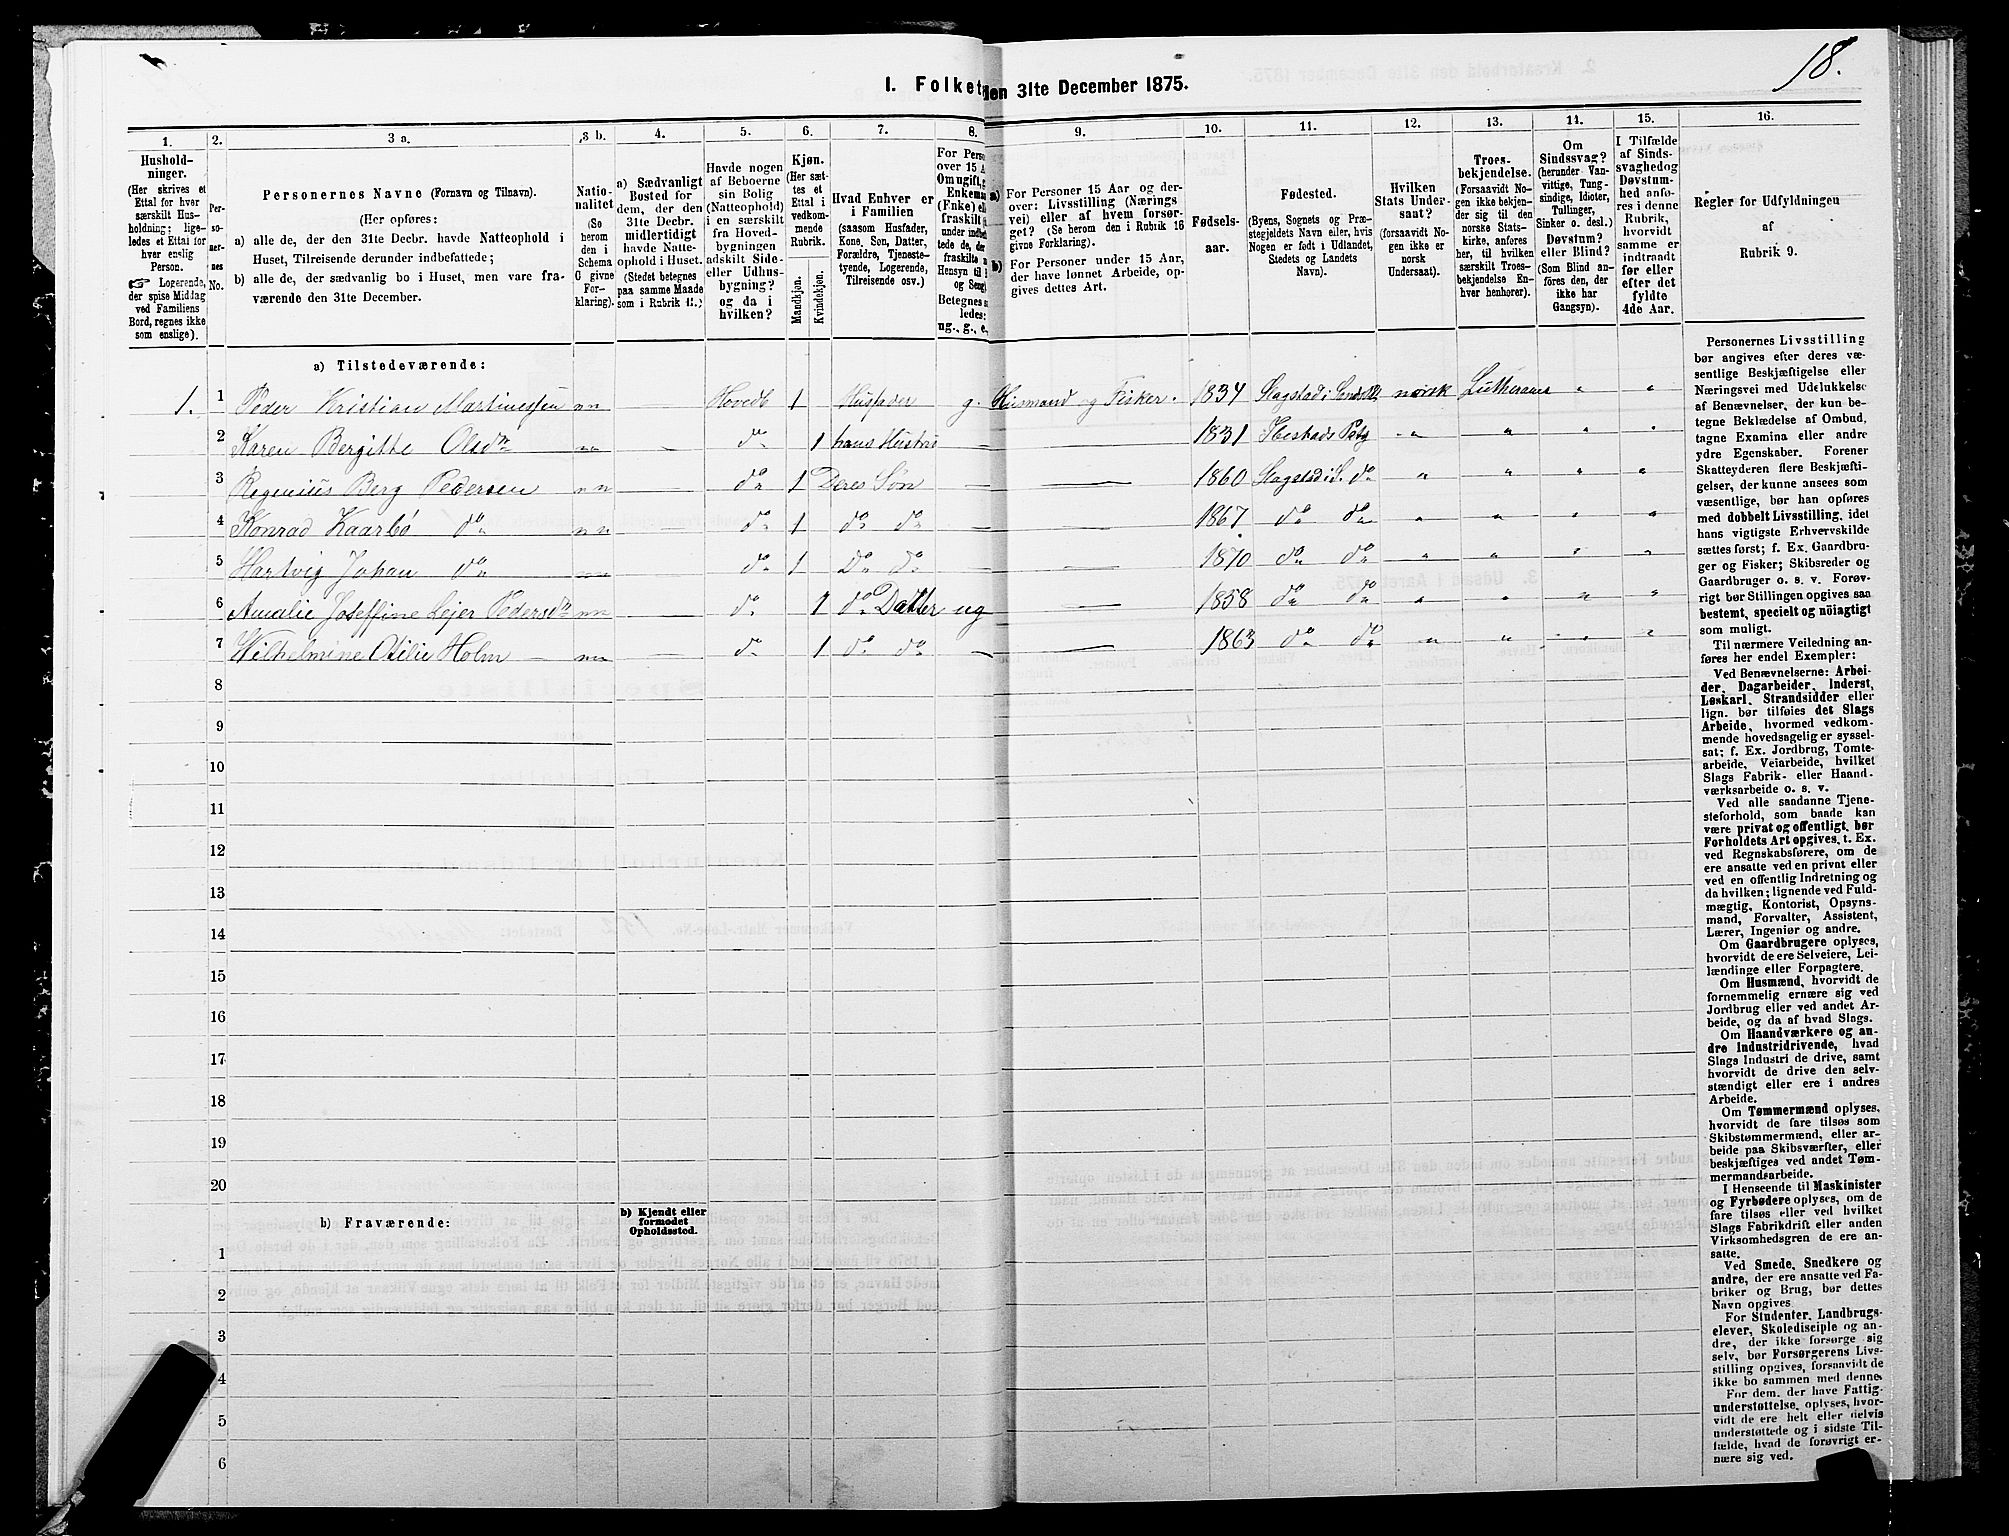 18.
I. Folket
den 31te December 1875.
1. 2. 3 a. 3 b. 4. 5. 6. 7. 8. 9. 10. 11. 12. 13. 14. 15. 16.
Hushold-
ninger.
(Her skrives et
Ettal for hver
særskilt Hus-
holdning; lige-
ledes et Ettal for
hver enslig
Person.
☞ Logerende,
der spise Middag
ved Familiens
Bord, regnes ikke
som enslige).
Per-
so-
ner-
nes
No.
Personernes Navne (Fornavn og Tilnavn).
(Her opføres:
a) alle de, der den 31te Decbr. havde Natteophold i
Huset, Tilreisende derunder indbefattede;
b) alle de, der sædvanlig bo i Huset, men vare fra-
værende den 31te December.
Natio-
nalitet
(So
herom
den i
Schema
C givne
For-
klaring).
a) Sædvanligt
Bosted for
dem, der den
31te Decbr.
midlertidigt
havde Natte-
ophold i Huset.
(Stedet betegnes
paa samme Maade
som i Rubrik 11.)
Havde nogen
af Beboerne
sin Bolig
(Natteophold)
i en særskilt
fra Hoved-
bygningen
adskilt Side-
eller Udhus-
bygning?
og da i
hvilken?
Kjøn.
(Her sæt-
tes et
Ettal i
vedkom-
mende
Rubrik.
Mandkjøn.
Kvindekjøn.
Hvad Enhver er
i Familien
(saasom Husfader,
Kone, Søn, Datter,
Forældre, Tjeneste-
tyende, Logerende,
Tilreisende osv.)
For Perso
over 15 A
Om ugift, g
Enkema
(Fnke) el
fraskilt
under indbe
tede de, de
fraskilte
Hensyn til
og Seng
Betegnes s
ledes:
ug., g., e.,
a) For Personer 15 Aar og der-
over: Livsstilling (Nærings
vei) eller af hvem forsør-
get? (Se herom den i Rubrik 16
givne Forklaring).
b) For Personer under 15 Aar,
der have lønnet Arbeide, op-
gives dettes Art.
Fødsels-
aar.
Fødested.
(Byens, Sognets og Præ-
stegjeldets Navn eller, hvis
Nogen er født i Udlandet,
Stedets og Landets
Navn).
Hvilken
Stats Under-
saat?
(forsaavidt No-
gen ikke er
norsk
Undersaat).
Troes-
bekjendelse.
(Forsaavidt No-
gen ikke bekjen-
der sig til den
norske Stats-
kirke, anføres
her, til hvilken
særskilt Troes-
bekjendelse En-
hver henhorer).
Om
Sindssvag?
(herunder Van-
vittige, Tung-
sindige, Idioter,
Tullinger,
Sinker o. desl.)
Døvstum?
eller Blind?
(Som Blind an-
føres den, der
ikke har
Gangsyn).
I Tilfælde
af Sinds-
svaghed og
Døvstum-
hed anfø-
res i denne
Rubrik,
hvorvidt
samme er
indtraadt
før eller
efter det
fyldte
4de Aar.
Regler for Udfyldningen
af
Rubrik 9.
a) Tilstedeværende:
1. 1 Peder Kristian Martinussen nn Hovedb 1 Husfader g. Husmand og Fisker. 1834 Slagstad i norsk Lutheraner " "
2 Karen Bergitte Olsdr nn — do 1 hans Hustru — — 1831 Ibestads " " " "
3 Regenius Berg Pedersen nn — do 1 Deres Søn — — 1860 Slagstad i S. do " " " "
4 Konrad Kaarbø do nn — do 1 do do — — 1867 do do " " " "
5 Hartvig Johan do nn — do 1 Do do — — 1870 do do " " " "
6 Amalie Joseffine Lejer Pedersdr nn — do 1 do Datter ug — 1858 do do " " " "
7 Wilhelmine Otilie Holm — nn — do 1 do do — — 1863 do do " " " "
8
9
10
11
12
13
14
15
16
17
18
19
20
b) Fraværende:
b) Kjendt eller
formodet
Opholdssted.
1
2
3
4
5
6
Personernes Livsstilling
bør angives efter deres væ-
sentlige Beskjæftigelse eller
Næringsvei med Udelukkelse
af Benævnelser, der kun be-
tegne Beklædelse af Ombud,
tagne Examina eller andre
ydre Egenskaber. Forener
Skatteyderen flere Beskjæfti-
gelser, der kunne ansees som
væsentlige, bør han opføres
med dobbelt Livsstilling, idet
hans vigtigste Erhvervskilde
sættes først; f. Ex. Gaardbru-
ger og Fisker; Skibsreder og
Gaardbruger o. s. v. Forøv-
rigt bør Stillingen opgives saa
bestemt, specielt og nöiagtigt
som muligt.
Til nærmere Veiledning an-
føres her endel Exempler:
Ved Benævnelserne: Arbei-
der, Dagarbeider, Inderst,
Løskarl, Strandsidder eller
lign. bør tilføies det Slags
Arbeide, hvormed vedkom-
mende hovedsagelig er syssel-
sat; f. Ex. Jordbrug, Tomte-
arbeide, Veiarbeide, hvilket
Slags Fabrik- eller Haand-
værksarbeide o. s. v.
Ved alle saadanne Tjene-
steforhold, som baade kan
være privat og offentligt, bør
Forholdets Art opgives, t. Ex.
ved Regnskabsførere, om de
ere ansatte ved en privat eller
ved en offentlig Indretning og
da hvilken; lignende ved Fuld-
mægtig, Kontorist, Opsyns-
mand, Forvalter, Assistent,
Lærer, Ingeniør og andre.
Om Gaardbrugere oplyses,
hvorvidt de ere Selveiere, Lei-
lændinge eller Forpagtere.
Om Husmænd, hvorvidt de
fornemmelig ernære sig ved
Jordbrug eller ved andet Ar-
beide, og da af hvad Slags.
Om Haandværkere og an-
dre Industridrivende, hvad
Slags Industri de drive, samt
hvorvidt de drive den selv-
stændigt eller ere i andres
Arbeide.
Om Tømmermænd oplyses,
hvorvidt de fare tilsøs som
Skibstømmermænd, eller ar-
beide paa Skibsværfter, eller
beskjæftiges ved andet Tøm-
mermandsarbeide.
I Henseende til Maskinister
og Fyrbødere oplyses, om de
fare tilsøs eller ved hvilket
Slags Fabrikdrift eller anden
Virksomhedsgren de ere an-
satte.
Ved Smede, Snedkere og
andre, der ere ansatte ved Fa-
briker og Brug, bør dettes
Navn opgives
For Studenter, Landbrugs-
elever, Skoledisciple og an-
dre, der ikke forsørge sig
selv, bør Forsørgerens Livs-
stilling opgives, forsaavidt de
ikke bo sammen med denne.
For dem, der have Fattig-
understøttelse, oplyses, hvor-
vidt de ere helt eller delvis
understøttede og i sidste Til-
fælde, hvad de forøvrigt er-
nære sig ved.